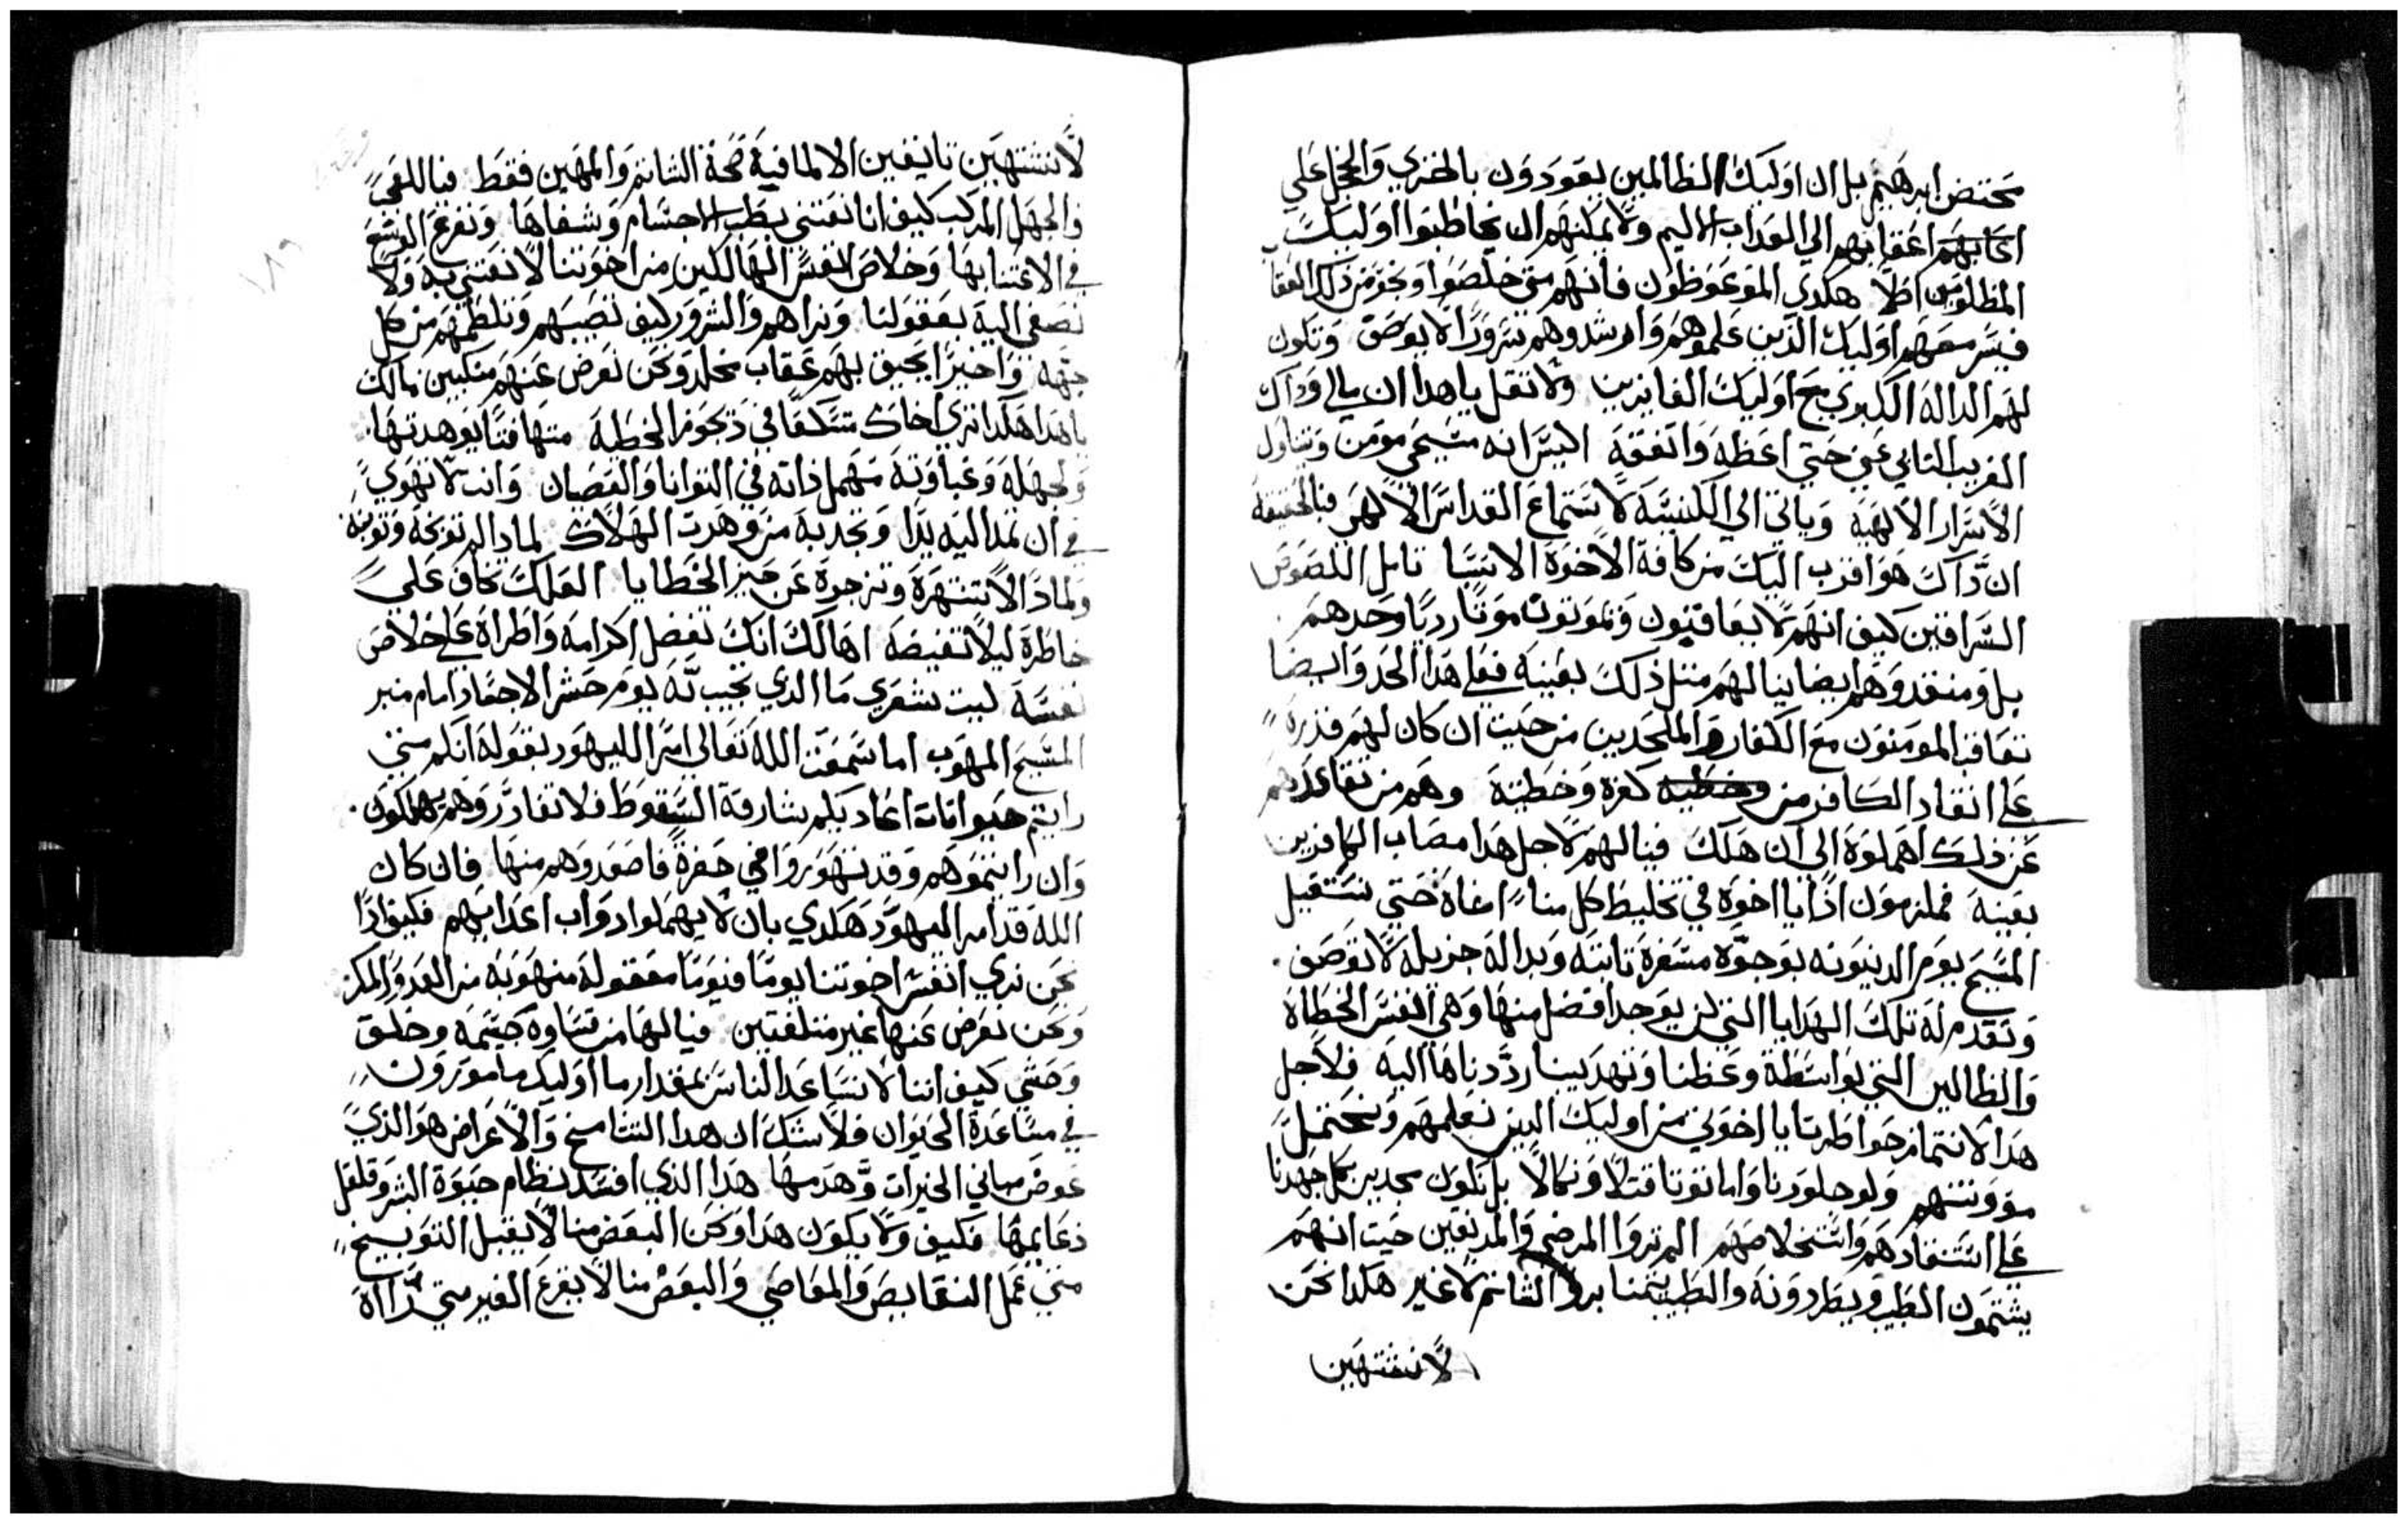 محتضن ابرهيم بل ان اوليك الظالمين يعودون بالخزي والخجل علي
اعقابهم الي العداب الاليم ولا يمكنهم ان يخاطبوا اوليك
المظلومين اصلا هكدي الموعوظون فانهم متي خلصوا ونجو من دلك العقاب
فيسر معهم اوليك الدين علموهم وارشدوهم سرورا لا يوصف وتكون
لهم الداله الكبري مع اوليك الفايزين ولا تقل ياهدا ان مالي وداك
الغريب الناي عني حتي اعظه وانفعه اليس انه مسيحي مومن ويتناول
الاسرار الالهيه وياتي الي الكنيسه لاستماع القداس الالهي فبالحقيقه
ان داك هو اقرب اليك من كافة الاخوة الانسبا تامل اللصوص
السراقين كيف انهم لا يعاقبون ويموتون موتا رديا وحدهم
بل ومنقدوهم ايضا ينالهم مثل ذلك بعينه فعلي هدا الحد وايضا
تعاقب المومنون مع الكفار والملحدين من حيت ان كان لهم قدرة
علي انقاد الكافر من كفره وخطيته وهم من تقاعدهم
عن دلك اهملوه الي ان هلك فينالهم لاجل هدا مصاب الكافرين
بعينه فملزمون اذا يا اخوه في تخليط كل منا اخاه حتي نستقبل
المسيح يوم الدينونه بوجوه مسفرة تابته وبداله جزيله لا توصف
ونقدم له تلك الهدايا التي لن يوجد افضل منها وهي انفس الخطاة
والظالين التي بواسطة وعظنا وتهديبنا رددناها اليه فلاجل
هدا لا نتماز خواطرنا يا اخوتي من اوليك الدين نعلمهم ونحتمل
موونتهم ولو جلدونا واماتونا قتلا ونكالا بل نكون مجدين بكل جهدنا
علي استنقادهم واستخلاصهم الم تروا المرضي والمدنفين حيت انهم
يشتمون الطبيب ويطردونه والطبيب يتمنا برو الشاتم لا غير هكدا نحن
لا ننتهين
لا ننتهين تانيفين الا لعافية صحة الشاتم والمهين فقط فياللعمي
والجهل المركب كيف اننا نعتني بطب الاجسام وشفاها ونفرغ الوسع
في الاعتنا بها وخلاص انفس الهالكين من اخوتنا لا نعتني به ولا
نصغي اليه بعقولنا ونراهم والشرور كيف تصيبهم وتلطمهم من كل
جهه واخيرا يحيق بهم عقاب مخلد ونحن نعرض عنهم متكبين مالك
ياهدا هكدا تري اخاك متسكعا في دجور الخطية متهافتا بوهدتها
ولجهله وغباوته مهمل ذاته في التوانا والنقصان وانت لا تهوي
في ان تمد اليه يدا وتجدبه من وهدت الهلاك لمادا لم توبخه وتونبه
ولمادا لا تنتهره وتزجره عن حيز الخطايا العلك تخاف علي
خاطره ليلا تغيضه اها لك انك تفضل اكرامه واطراه علي خلاص
نفسه ليت شعري ما الدي تجيب به يوم حشر الاجساد امام منبر
المسيح المهوب اما سمعت الله تعالي امر اليهود بقوله انكم متي
رايتم حيوانات اعاديكم مشارفة السقوط فلا تغادروهم يهلكون
وان رايتموهم وقد تهوروا في حفرة فاصعدوهم منها فان كان
الله قد امر اليهود هكدي بان لا يهملوا دواب اعدايهم فكيف اذا
نحن نري انفس اخوتنا يوما فيوما معقوله منهوبه من العدو والمكر
ونحن نعرض عنها غير متلفتين فيالها من قساوه جسيمه وخلق
وحشي كيف اننا لا نساعد الناس بمقدار ما اوليك مامورون
في مساعدة الحيوان فلا شك ان هدا التتامح والاعراض هو الذي
عوض مباني الخيرات وهدمها هدا الذي افسد نظام حيوة البشر وقلقل
دعايمها فكيف ولا يكون هدا ونحن البعض منا لا يقبل التوبيخ
متي عمل النقايص والمعاصي والبعض منا لا يقرع الغير متي رااه